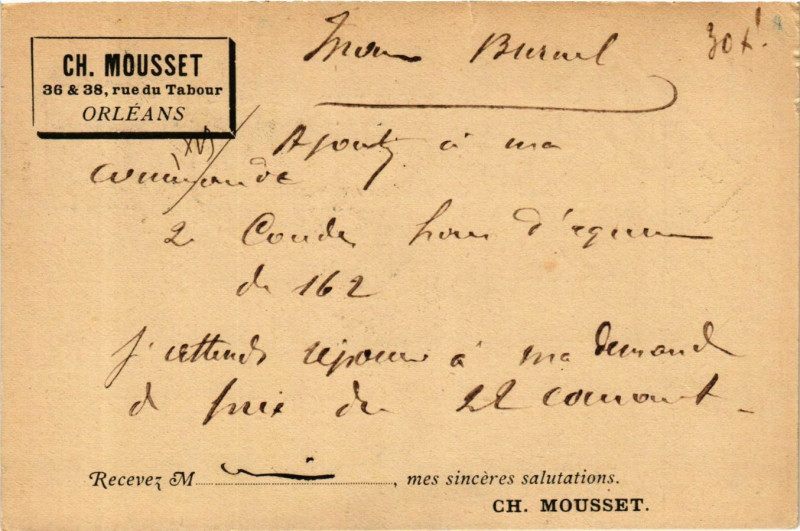 CH. MOUSSET
36 & 38, rue du Tabour
ORLÉANS
30 x
Ajoutez à ma
commande
2 Coudes hors d'équerre
de 162
J'attends réponse à ma demande
de prix du 22 courant.
Recevez M, mes sincères salutations.
CH. MOUSSET.